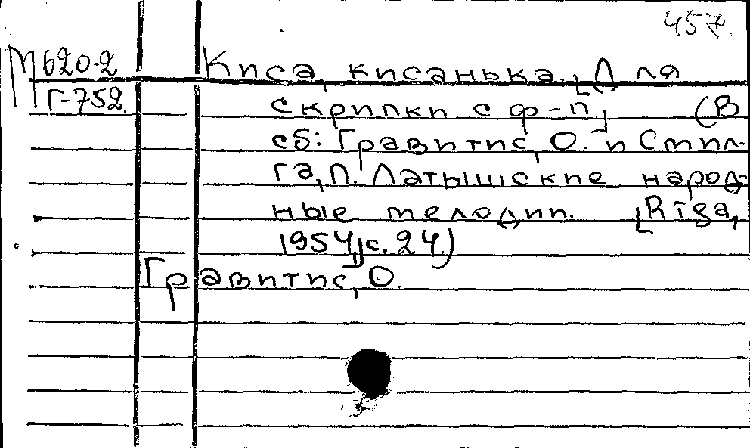 457.
М620-2
Г-752.
Киса, кисанька. [Для
скрипки с ф-п] (В
сб: Гравитис, О. и Стпл-
га, П. Латышские народ-
ные мелодии. [Rīga,
1954] с. 24.)
Гравитис, О.